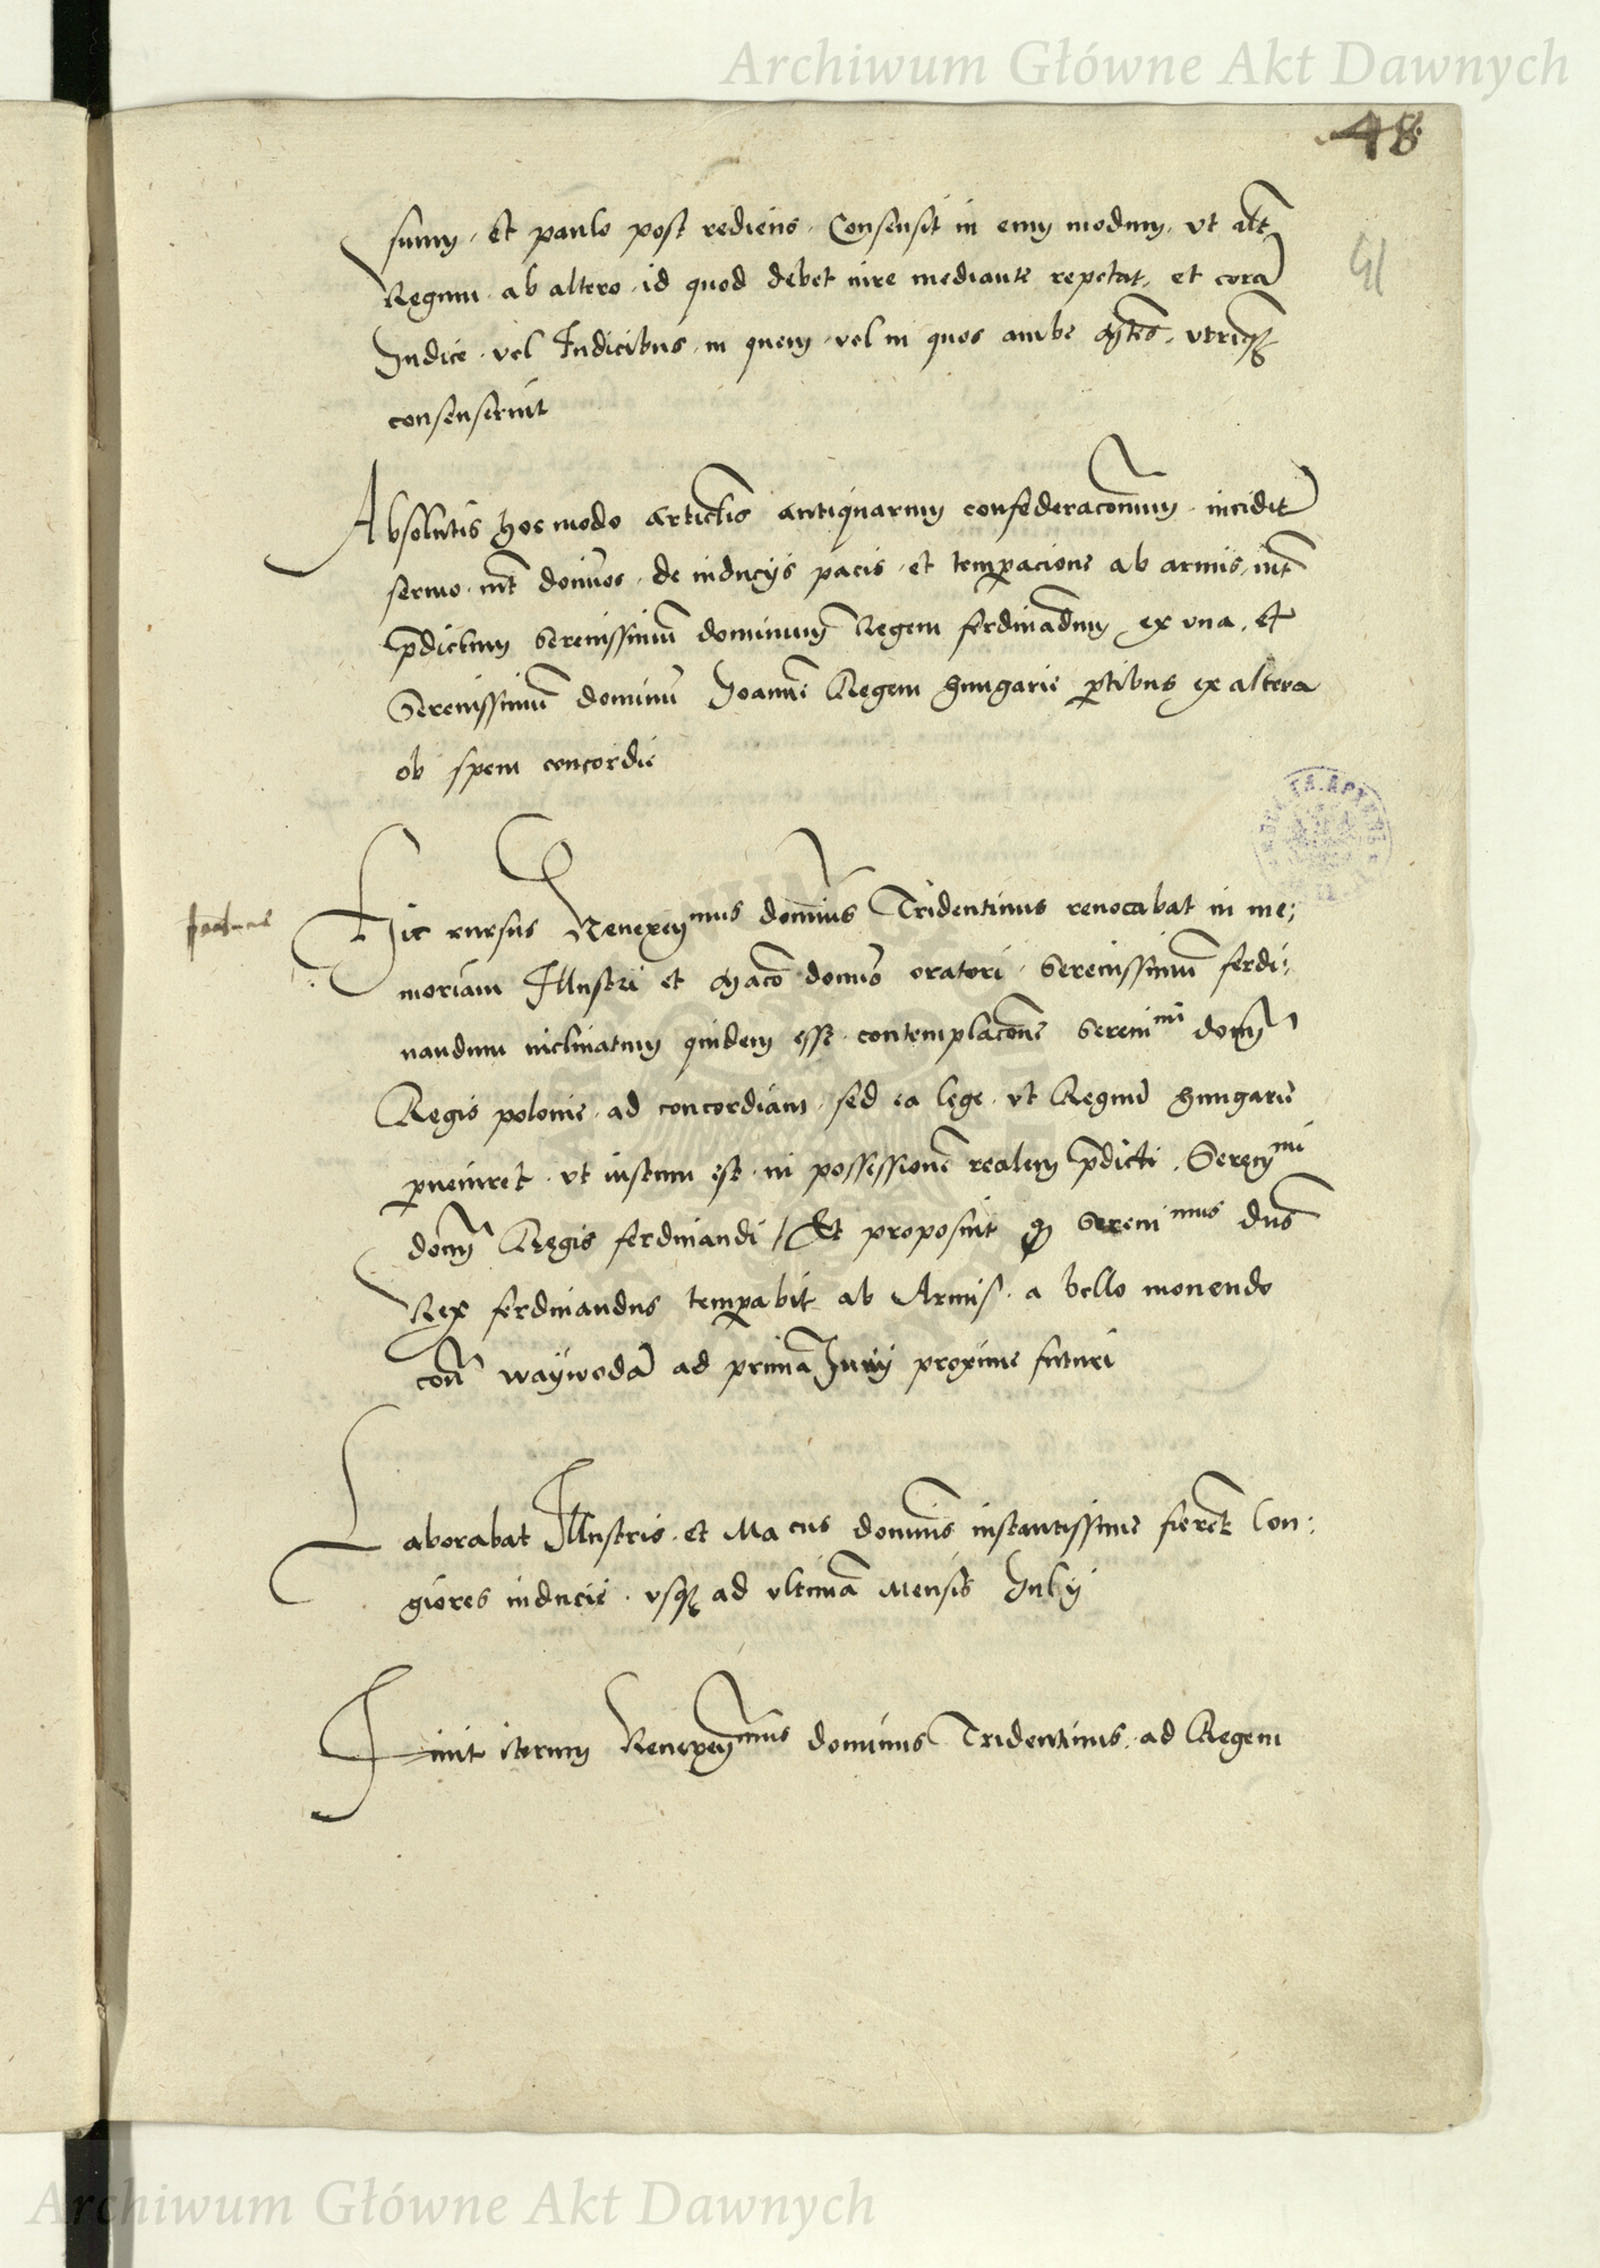 Archiwum Główne Akt Dawnych
48
suum. Et paulo post rediens. Consensit in eum modum. ut alter
Regum ab altero id quod debet iure mediante repetat. et corā
Judice vel Judicibus in quem vel in quos ambe ptes utriq3
consenserint
Absolutis hoc modo articlis antiquarum confederacōnum incidit
sermo int domīos de inducÿs pacis et temperacione ab armis int
p̄dictum Serenissimū dominum Regem ferdinādum ex una. Et
Serenissimū dominū Joannē Regem Hungarie ptibus ex altera
ob spem concordie
Hic rursus Reverenmus domīus Tridentinus revocabat in me:
moriam Illustri et Maco domīo oratori Serenissimū ferdi:
nandum inclinatum quidem esse contemplacōne Serenimi domī
Regis polonie ad concordiam sed ea lege ut Regnū Hungarie
pveniret ut iustum est in possessionē realem p̄dicti Serenmi
domī Regis ferdinandi / Et proposuit q Serenimus dns
Rex ferdinandus temperabit ab Armis a bello movendo
con waÿwodā ad primā Junÿ proxime futuri
Laborabat Illustris et Macus dominus instantissime fierēt Lon:
giores inducie usq3 ad ultimā Mensis Julÿ
Iuit iterum Reverenmus dominus Tridentinus ad Regem
Archiwum Główne Akt Dawnych